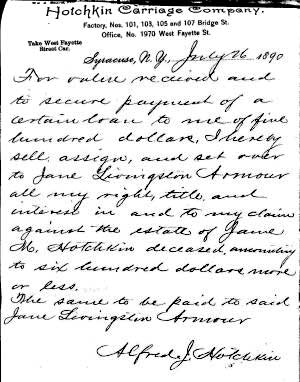 Hotchkin Carriage Company.
Factory, Nos. 101, 103, 105 and 107 Bridge St.
Office, No. 1970 West Fayette St.
Take West Fayette
Street Car.
Syracuse, N.Y., July 26 1890
For value received and
to secure payment of a
certain loan to me of five
hundred dollars, I hereby
sell, assign, and set over
to Jane Livingston Armour
all my right, title, and
interest in and to my claim
against the estate of Jane
M. Hotchkin deceased, amounting
to six hundred dollars more
or less.
The same to be paid to said
Jane Livingston Armour
Alfred J. Hotchkin